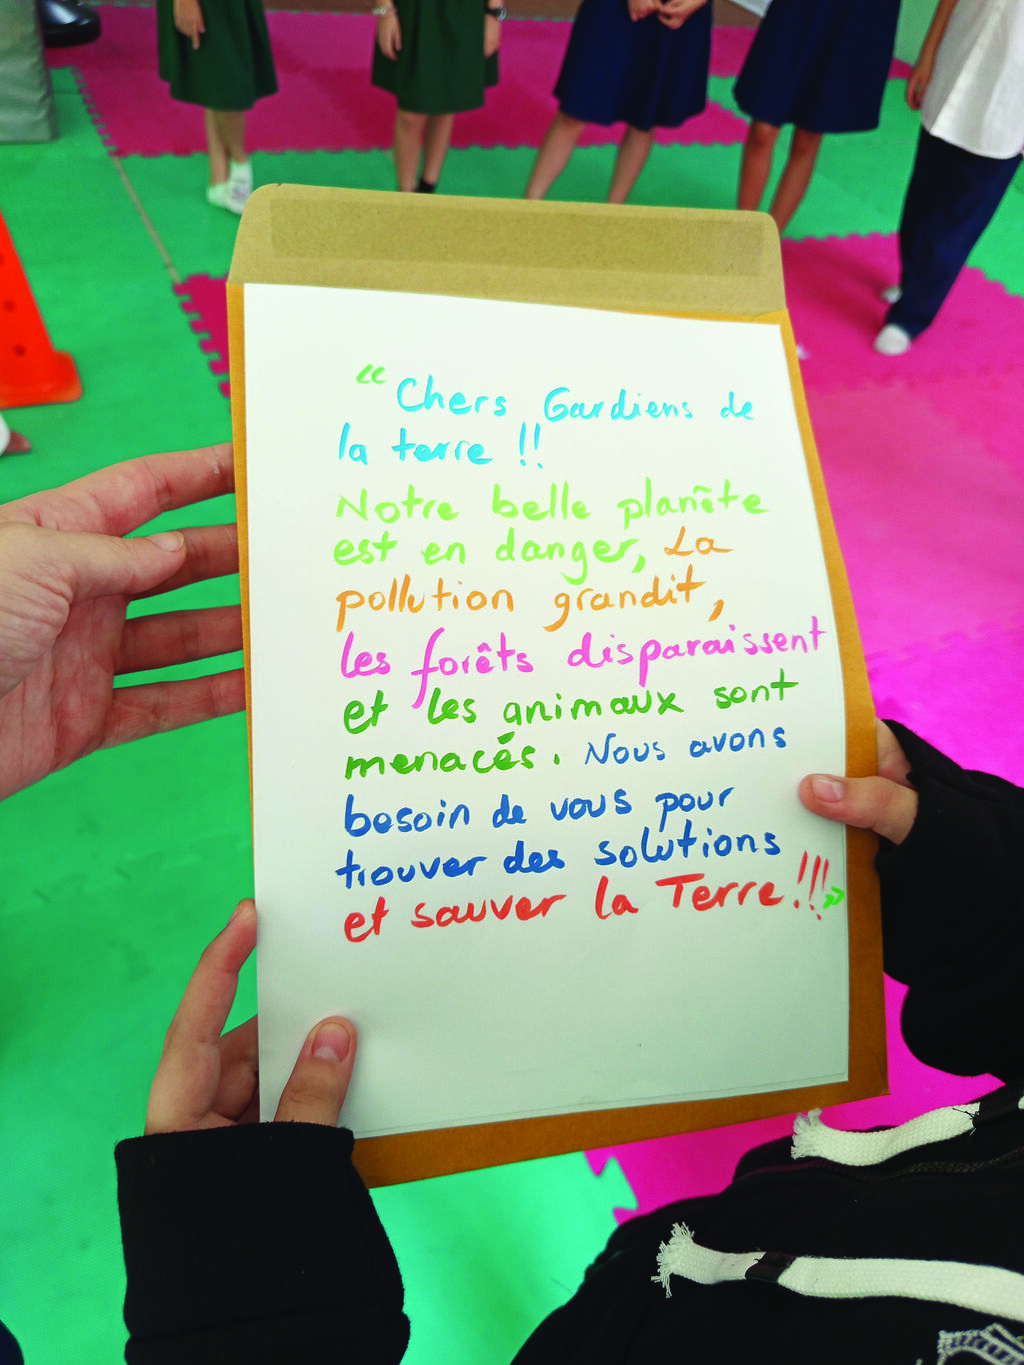 « Chers Gardiens de
la terre !!
Notre belle planête
est en danger, La
pollution grandit,
les forêts disparaissent
et les animaux sont
menacés. Nous avons
besoin de vous pour
trouver des solutions
et sauver la Terre !!! »